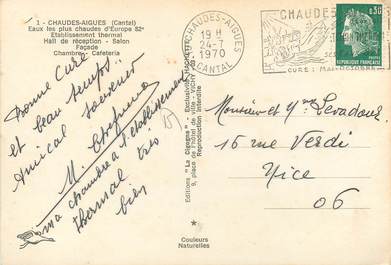 1 - CHAUDES-AIGUES (Cantal)
Eaux les plus chaudes d'Europe 82°
Etablissement thermal
Hall de réception - Salon
Façade
Chambre - Cafeteria
Bonne cure
et beau temps
Amical souvenir
M
ma chambre à l'établissement
thermal très
bien
Editions "La Cigogne"
9, place de l'hôtel de ville - VICHY
Reproduction Interdite
Couleurs
Naturelles
CHAUDES-AIGUES
19 H
24-7
1970
CANTAL
CHAUDES
CURE : MAI-OCTOBRE
0,30
REPUBLIQUE FRANÇAISE
Monsieur et Mme
15 rue Verdi
Nice
06